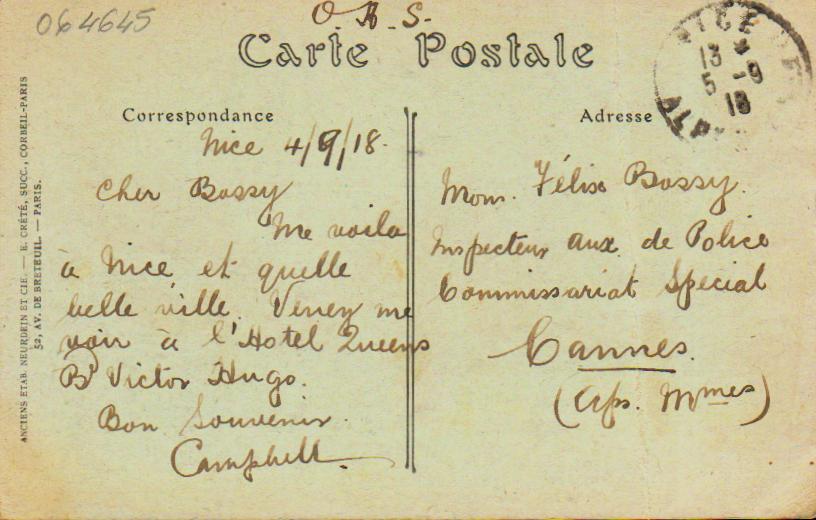 064645
O.A.S.
Carte Postale
NICE
13 *
5 -9
18
ALP
Correspondance
Nice 4/9/18.
Cher Bossy
Me voila
à Nice et quelle
belle ville. Venez me
voir à l'Hotel Queens
Bd Victor Hugo.
Bon Souvenir
Campbell.
Adresse
Mons. Félix Bossy.
Inspecteur aux. de Police
Commissariat Special
Cannes.
(Alps. Mmes)
ANCIENS ETAB. NEURDEIN ET CIE. — E. CRÉTÉ, SUCC., CORBEIL-PARIS
52, AV. DE BRETEUIL. — PARIS.